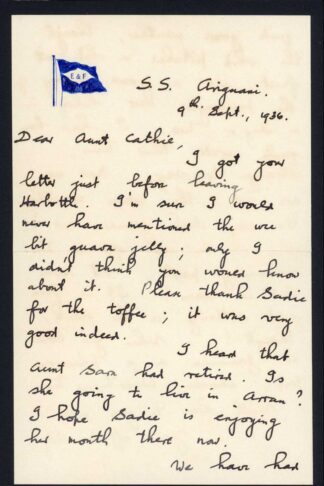 E & F
S.S. Aviguari.
9th Sept., 1936.
Dear Aunt Cathie,
I got your
letter just before leaving
Harbottle. I'm sure I would
never have mentioned the wee
bit guava jelly; only I
didn't think you would know
about it. Please thank Sadie
for the toffee; it was very
good indeed.
I heard that
Aunt Sara had retired. Is
she going to live in Arran?
I hope Sadie is enjoying
her month there now.
We have had